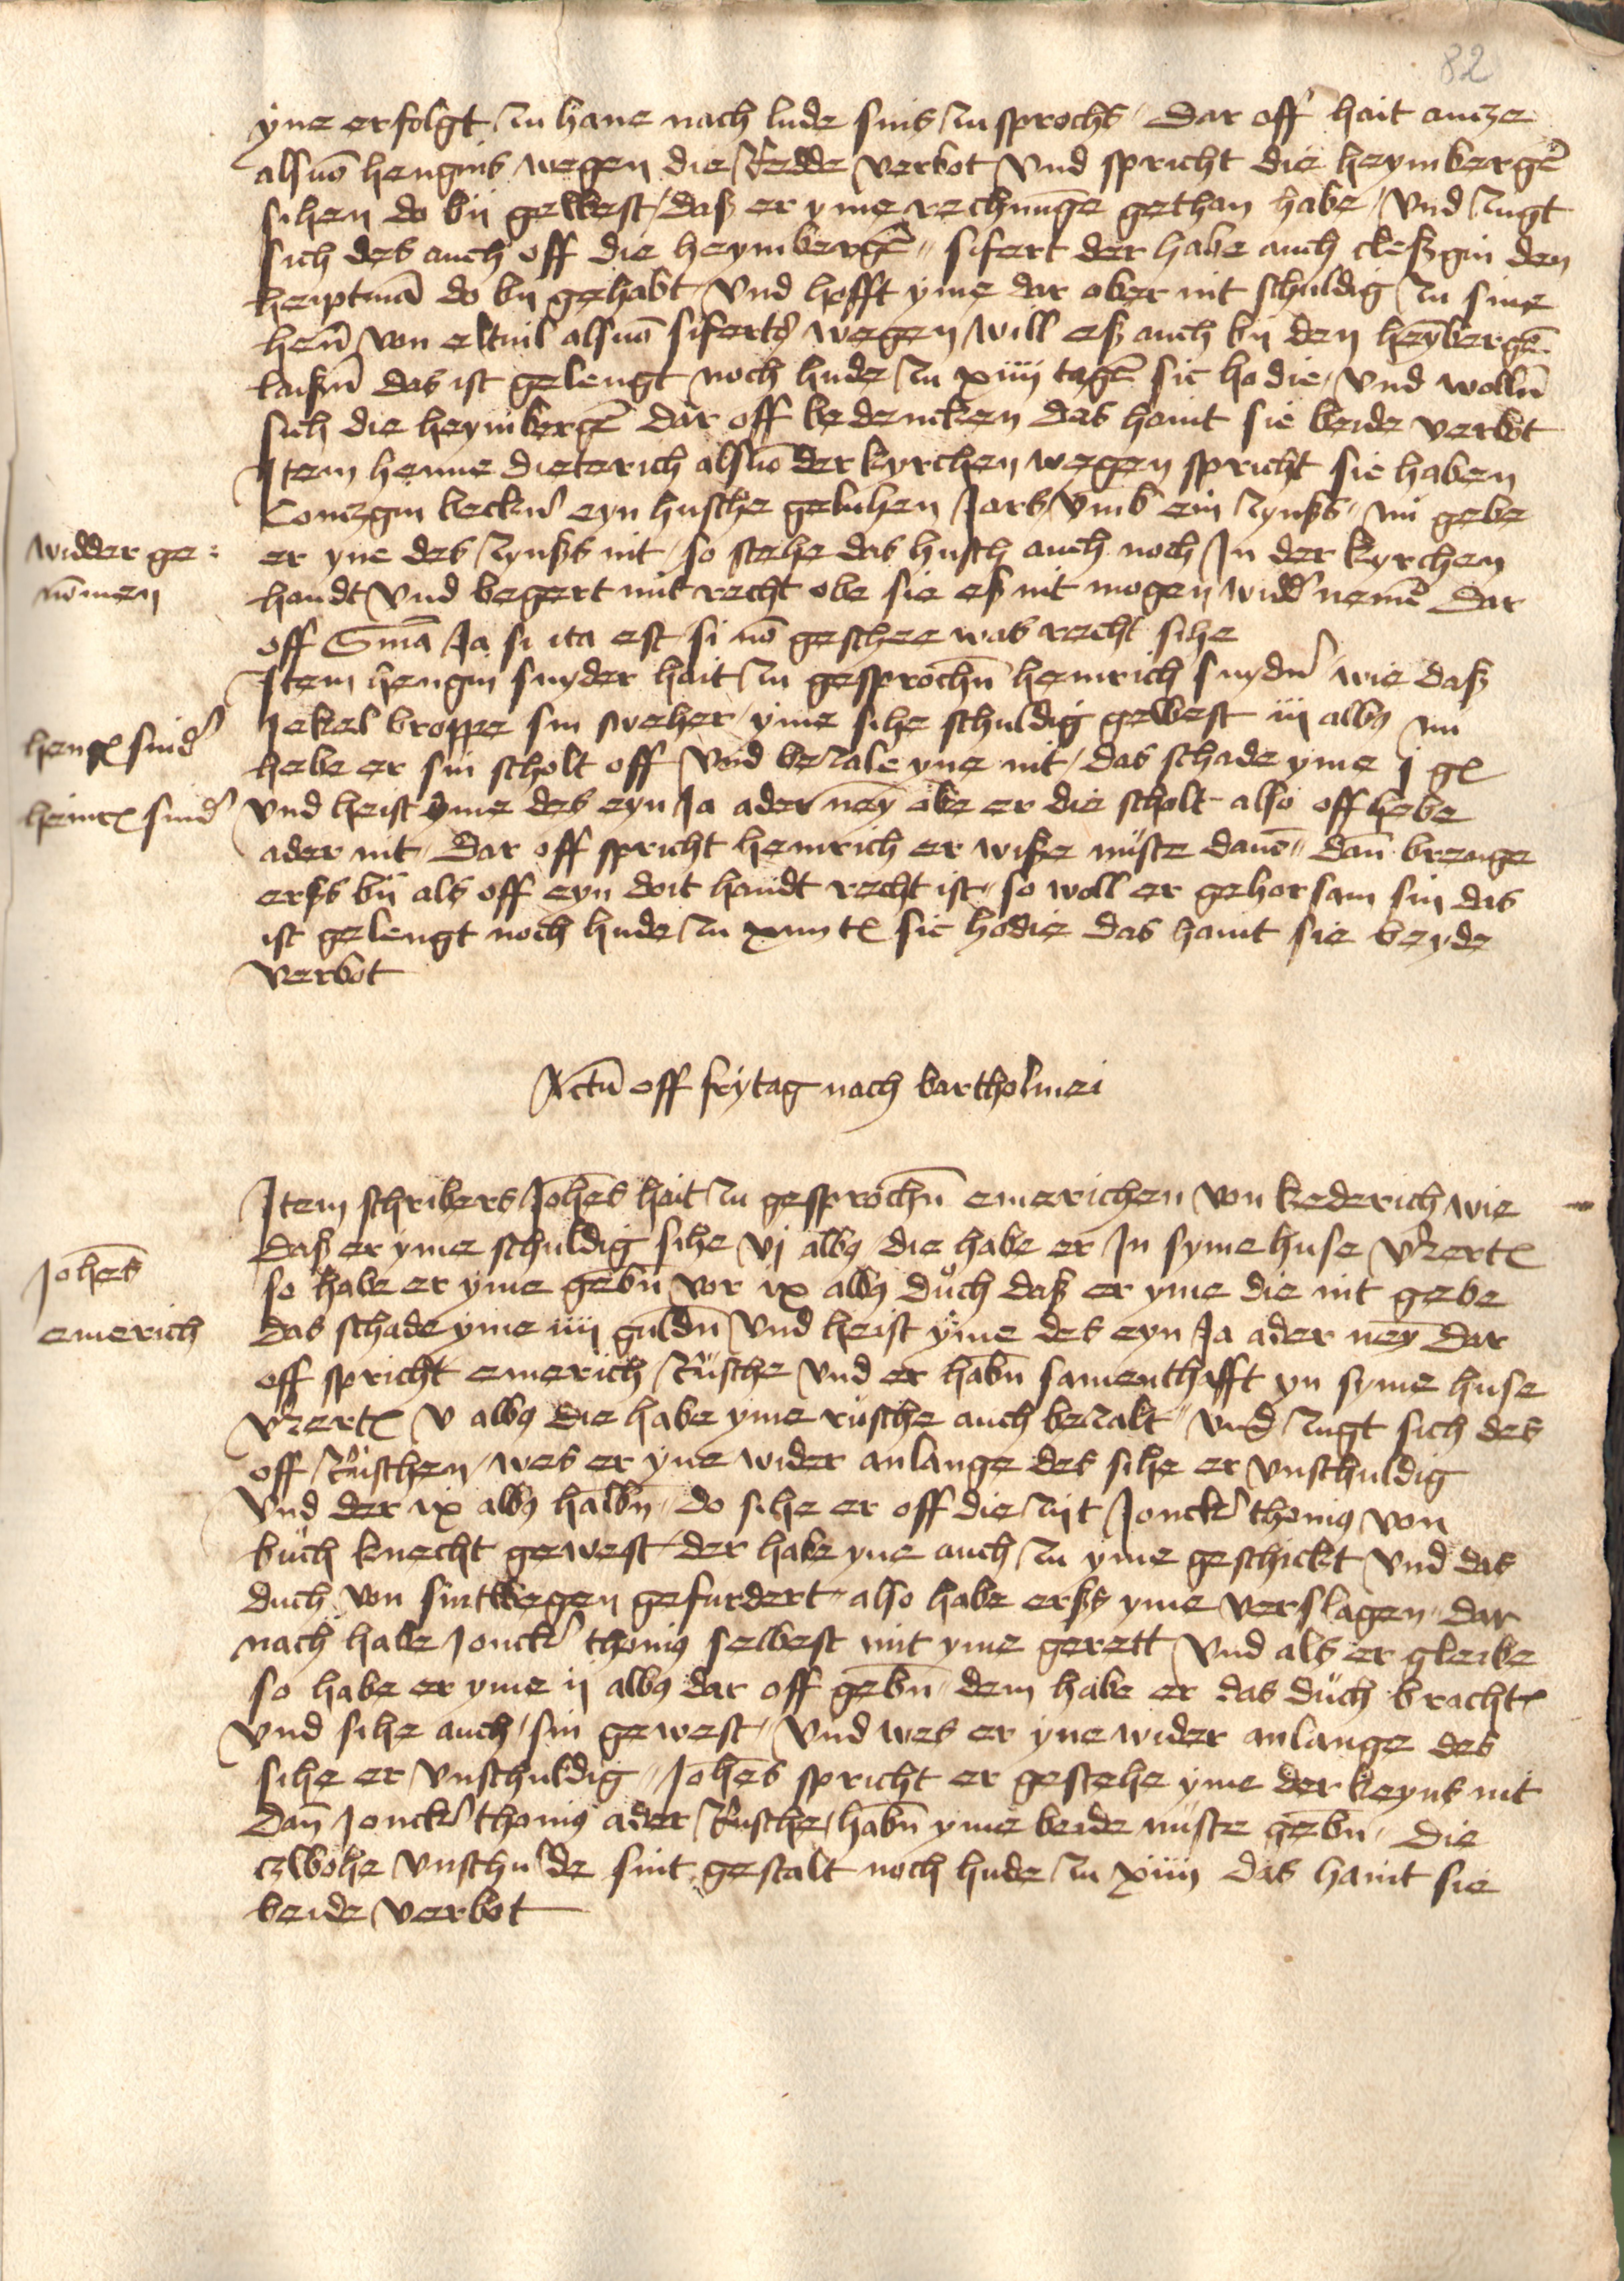 82
yne erfolgt zu hane nach lude sins zusprochs Dar off hait antze
alsuo hengins wegen die Redde verbot Vnd spricht die heymbergē
sihen do bij gewest / daß er yme rechnūge gethan habe / Vnd zugt
sich des auch off die heymbergē sifert der habe auch cleßgin den
heuptmā do bij gehabt Vnd hofft yme dar ober nit schuldig zu sine
henn von eltuil alsuo siferts wegen will eß auch bij den heymbergn̄
laißn̄ das ist gelengt noch hude zu xiiij tagē sic hodie / Vnd wolln̄
sich die heymbergē dar off bedencken das haint sie beide verbot
Item henne dieterich alsuo der kyrchen wegen spricht sie haben
Contzgin becker eyn husche geluhen Jars vmb ein zynßs nu gebe
widder ge:
nōmen
er yne des zynßs nit / so stehe das husch auch noch Jn der kyrchen
handt Vnd begert mit recht obe sie eß nit mogen widd' nemē Dar
off Smā Ja si ita est si nō geschee was recht sihe
Item hengin snyder hait zu gesprochn̄ heinrich snyder wie daß
hengꝭ snid'
Jekel broppe sin sweher / yme sihe schuldig gewest iij albꝰ nu
hebe er sin scholt off Vnd bezale yne nit / das schade yme j gꝭ
heinrꝭ snid'
Vnd heist yme des eyn Ja ader ney obe er die scholt also off hebe
ader nit Dar off spricht heinrich er wiße nuste dauō dan̄ brenge
erßs bij als off eyn doit handt recht ist so woll er gehorsam sin das
ist gelengt noch hude zu xiiij tꝭ sic hodie das haint sie beyde
verbot
Actū off frytag nach bartholmei
Item schribers Johēs hait zu gesprochn̄ emerichen von kederich wie
daß er yme schuldig sihe vj albꝰ die habe er Jn syme huse v'zertꝭ
Johēs
so habe er yme gebn̄ vor ix albꝰ duch daß er yme die nit gebe
emerich
das schade yme iiij guldn̄ Vnd heist yme des eyn Ja ader ney Dar
off spricht emerich Rusche Vnd er habn̄ samenthafft yn syme huse
v'zertꝭ v albꝰ die habe yme rusche auch bezalt Vnd zugt sich des
off Ruschen / wes er yne wider anlange des sihe er vnschuldig
Vnd der ix albꝰ halbn̄ do sihe er off die zijt Jonck' thonigꝰ von
buch knecht gewest der habe yne auch zu yme geschickt Vnd das
duch von sintwegen gefurdert also habe erßs yme verslagen dar
nach habe Jonck' thonigꝰ selbest mit yme gerett Vnd als er gleibe
so habe er yme ij albꝰ dar off gebn̄ dem habe er das duch brachtꝭ
Vnd sihe auch sin gewest / Vnd wes er yne wider anlange des
sihe er vnschuldig Johēs spricht er gestehe yme der keyns nit
dan̄ Jonck' thonigꝰ ader Rusche / habn̄ yme beide nuste gebn̄ Die
czwohe vnschulde sint gestalt noch hude zu xiiij das haint sie
beide verbot